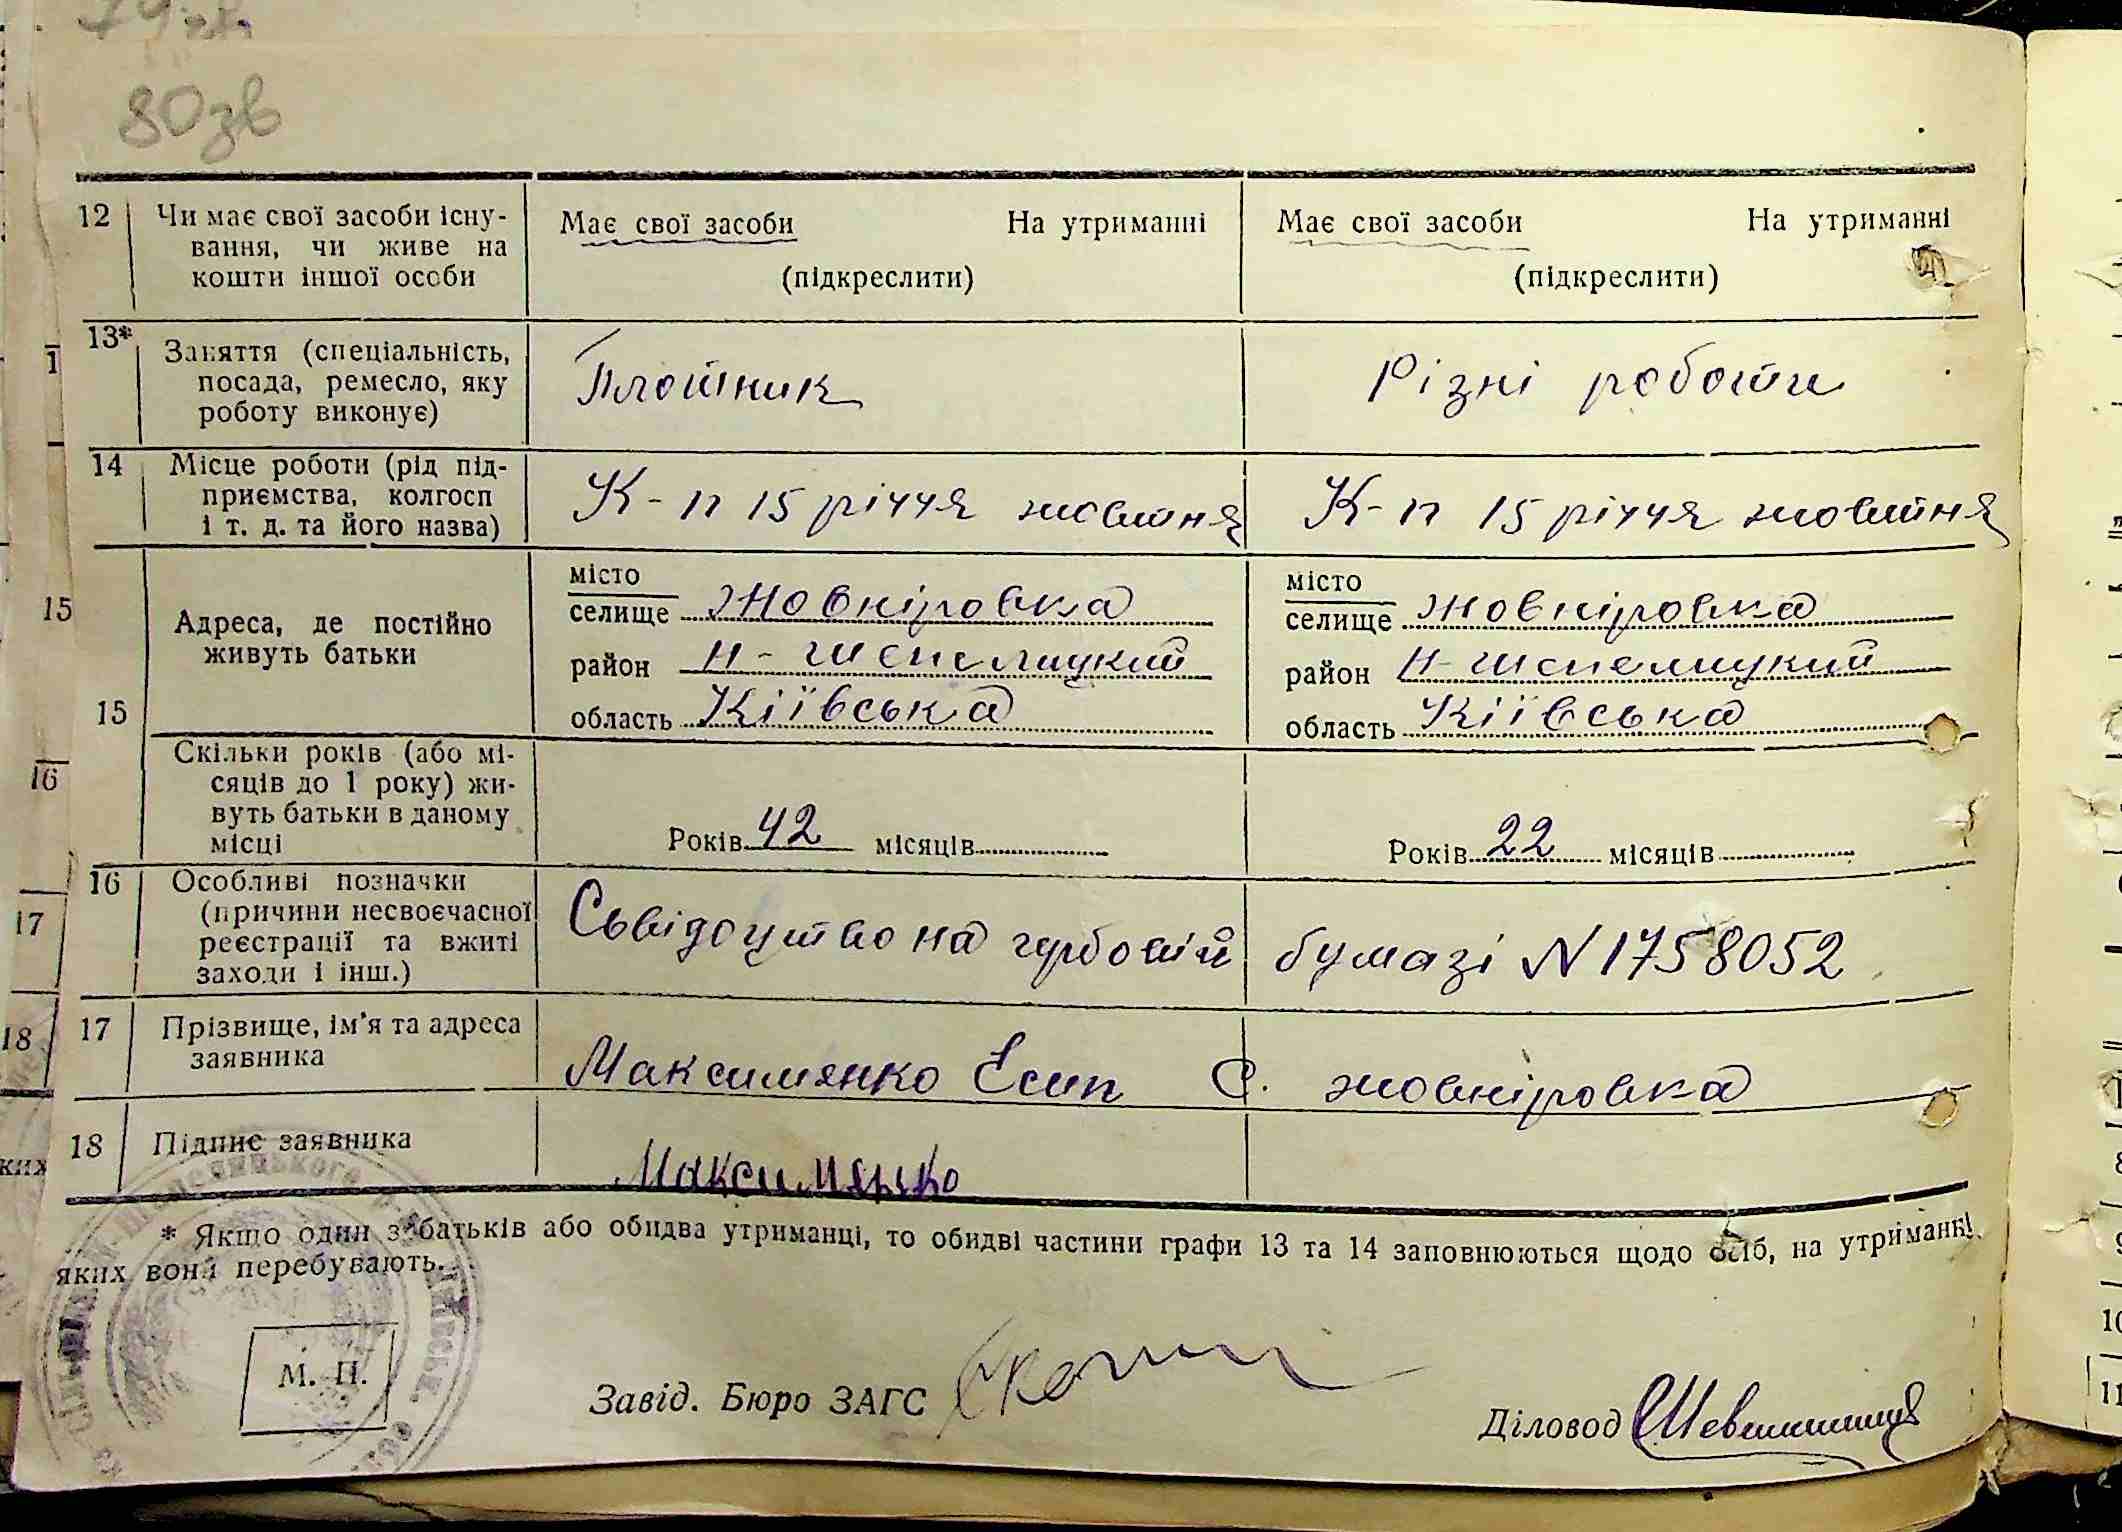 80зв
12 Чи має свої засоби існу-
вання, чи живе на
кошти іншої особи
Має свої засоби На утриманні
(підкреслити)
Має свої засоби На утриманні
(підкреслити)
13* Заняття (спеціальність,
посада, ремесло, яку
роботу виконує)
Плотник
Різні роботи
14 Місце роботи (рід під-
приємства, колгосп
і т. д. та його назва)
К-п 15 річчя жовтня
К-п 15 річчя жовтня
15
Адреса, де постійно
живуть батьки
місто
селище Жовніровка
район Н-шепелицкий
область Кіївська
місто
селище Жовніровка
район Н-шепелицкий
область Кіївська
15
Скільки років (або мі-
сяців до 1 року) жи-
вуть батьки в даному
місці
Років 42 місяців
Років 22 місяців
16
16 Особливі позначки
(причини несвоєчасної
реєстрації та вжиті
заходи і інш.)
Сьвідоцтво на гурбовій бумазі N 1758052
17
17 Прізвище, ім'я та адреса
заявника
Максимянко Єсип С. жовніровка
18
18 Підпис заявника
Максименко
ких
* Якщо один з батьків або обидва утриманці, то обидві частини графи 13 та 14 заповнюються щодо осіб, на утриманні
яких вони перебувають.
М. П.
Завід. Бюро ЗАГС
Діловод